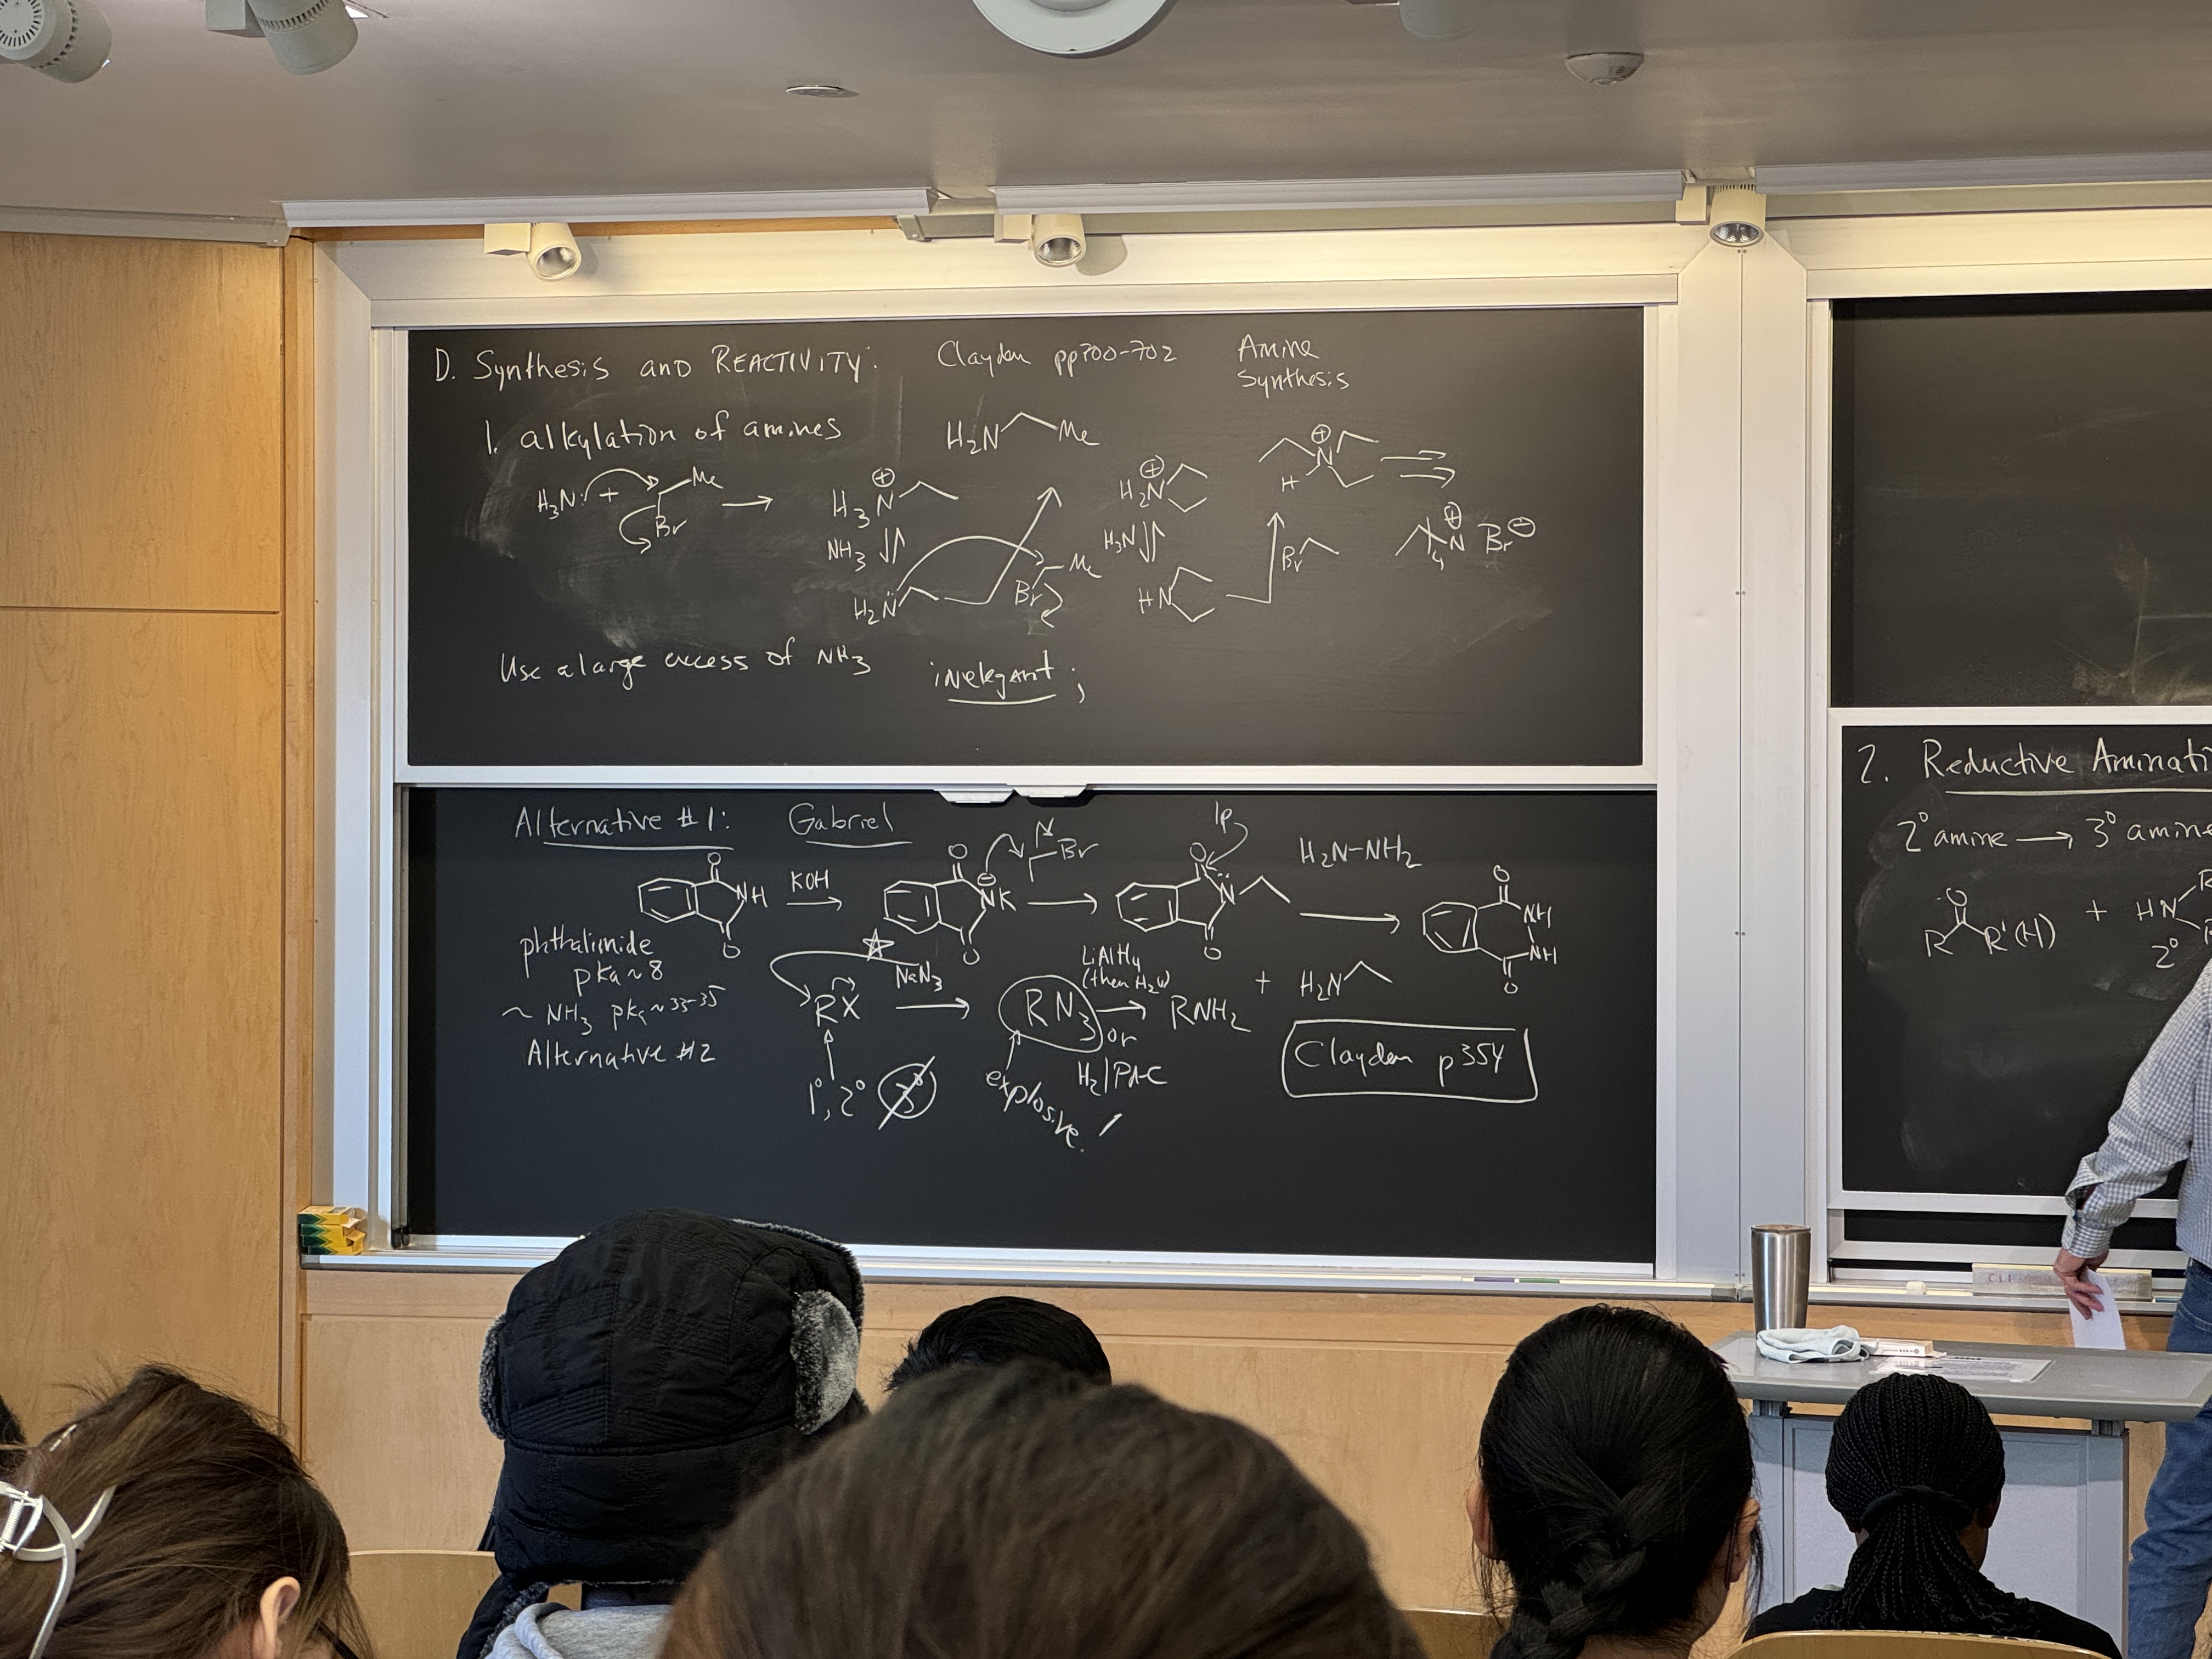 D. Synthesis and REACTIVITY: Clayden pp700-702 Amine Synthesis
1. alkylation of amines H2N Me
H3N: + Me Br
H3N ⊕
NH3
H2N̈
Br Me
⊕ H2N
H3N
HN
Br
⊕ N H
⊕ N 4 Br ⊖
Use a large excess of NH3 inelegant ;
Alternative #1: Gabriel
O NH O
KOH
O ⊖ NK O
Br
lp
O N̈ O
H2N-NH2
O NH NH O
+ H2N
phthalimide
pKa ~ 8
~ NH3 pKa ~ 33-35
Alternative #2
RX
NaN3
RN3
LiAlH4
(then H2O)
or
H2/Pd-C
RNH2
1°, 2° 3°
explosive!
Clayden p354
2. Reductive Aminati
2° amine → 3° amine
O R R'(H) + HN R
2°